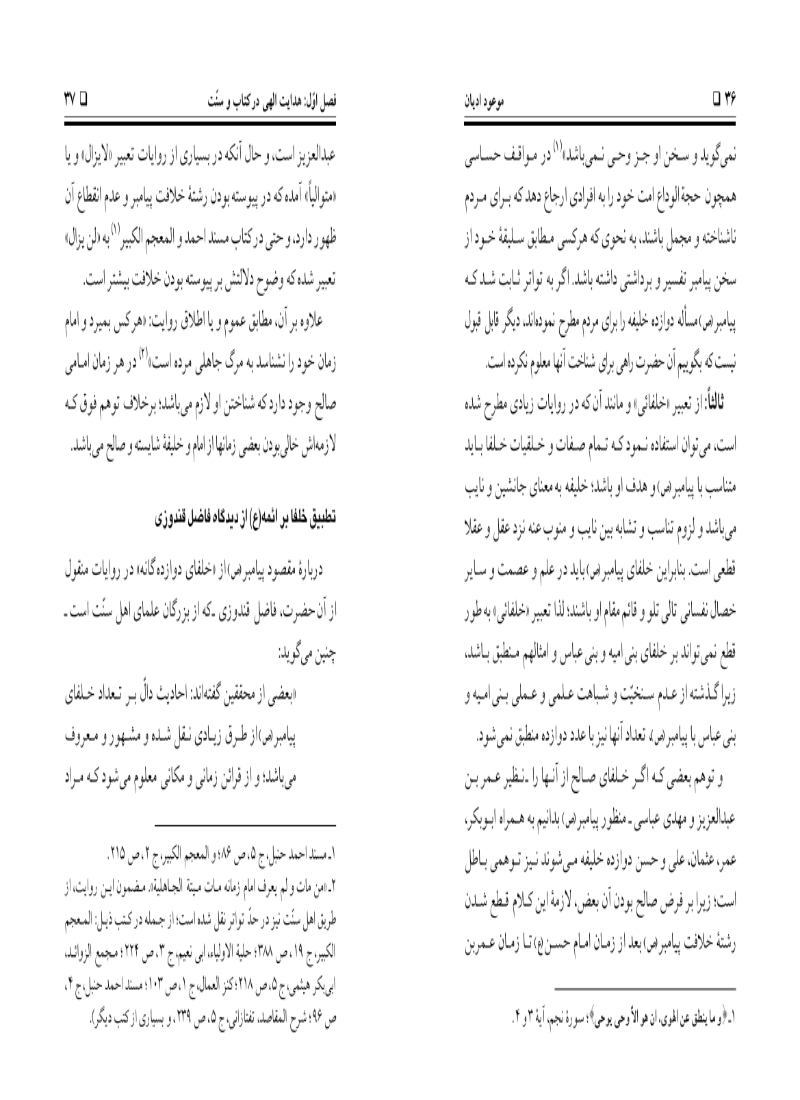 ۳۶ □ موعود ادیان
نمی‌گوید و سخن او جز وحی نمی‌باشد»(۱) در مواقف حساسی
همچون حجةالوداع امت خود را به افرادی ارجاع دهد که برای مردم
ناشناخته و مجمل باشند، به نحوی که هرکسی مطابق سلیقهٔ خود از
سخن پیامبر تفسیر و برداشتی داشته باشد. اگر به تواتر ثابت شد که
پیامبر(ص) مسأله دوازده خلیفه را برای مردم مطرح نموده‌اند، دیگر قابل قبول
نیست که بگوییم آن حضرت راهی برای شناخت آنها معلوم نکرده است.
ثالثاً: از تعبیر «خلفائی» و مانند آن که در روایات زیادی مطرح شده
است، می‌توان استفاده نمود که تمام صفات و خلقیات خلفا باید
متناسب با پیامبر(ص) و هدف او باشد؛ خلیفه به معنای جانشین و نایب
می‌باشد و لزوم تناسب و تشابه بین نایب و منوب عنه نزد عقل و عقلا
قطعی است. بنابراین خلفای پیامبر(ص) باید در علم و عصمت و سایر
خصال نفسانی تالی تلو و قائم مقام او باشند؛ لذا تعبیر «خلفائی» به طور
قطع نمی‌تواند بر خلفای بنی‌امیه و بنی‌عباس و امثالهم منطبق باشد،
زیرا گذشته از عدم سنخیّت و شباهت علمی و عملی بنی‌امیه و
بنی‌عباس با پیامبر(ص)، تعداد آنها نیز با عدد دوازده منطبق نمی‌شود.
و توهم بعضی که اگر خلفای صالح از آنها را ـ نظیر عمربن
عبدالعزیز و مهدی عباسی ـ منظور پیامبر(ص) بدانیم به همراه ابوبکر،
عمر، عثمان، علی و حسن دوازده خلیفه می‌شوند نیز توهمی باطل
است؛ زیرا بر فرض صالح بودن آن بعض، لازمهٔ این کلام قطع شدن
رشتهٔ خلافت پیامبر(ص) بعد از زمان امام حسن(ع) تا زمان عمربن
۱ـ ﴿و ما ینطق عن الهوی، ان هو الاّ وحی یوحی﴾؛ سورهٔ نجم، آیهٔ ۳ و ۴.
فصل اوّل: هدایت الهی در کتاب و سنّت □ ۳۷
عبدالعزیز است، و حال آنکه در بسیاری از روایات تعبیر «لایزال» و یا
«متوالیاً» آمده که در پیوسته بودن رشتهٔ خلافت پیامبر و عدم انقطاع آن
ظهور دارد، و حتی در کتاب مسند احمد و المعجم الکبیر(۱) به «لن یزال»
تعبیر شده که وضوح دلالتش بر پیوسته بودن خلافت بیشتر است.
علاوه بر آن، مطابق عموم و یا اطلاق روایت: «هرکس بمیرد و امام
زمان خود را نشناسد به مرگ جاهلی مرده است»(۲) در هر زمان امامی
صالح وجود دارد که شناختن او لازم می‌باشد؛ برخلاف توهم فوق که
لازمه‌اش خالی‌بودن بعضی زمانها از امام و خلیفهٔ شایسته و صالح می‌باشد.
تطبیق خلفا بر ائمه(ع) از دیدگاه فاضل قندوزی
دربارهٔ مقصود پیامبر(ص) از «خلفای دوازده گانه» در روایات منقول
از آن حضرت، فاضل قندوزی ـ که از بزرگان علمای اهل سنّت است ـ
چنین می‌گوید:
«بعضی از محققین گفته‌اند: احادیث دالّ بر تعداد خلفای
پیامبر(ص) از طرق زیادی نقل شده و مشهور و معروف
می‌باشد؛ و از قرائن زمانی و مکانی معلوم می‌شود که مراد
۱ـ مسند احمد حنبل، ج ۵، ص ۸۶؛ و المعجم الکبیر، ج ۲، ص ۲۱۵.
۲ـ «من مات و لم یعرف امام زمانه مات میتة الجاهلیة». مضمون این روایت، از
طریق اهل سنّت نیز در حدّ تواتر نقل شده است؛ از جمله در کتب ذیل: المعجم
الکبیر، ج ۱۹، ص ۳۸۸؛ حلیة الاولیاء، ابی نعیم، ج ۳، ص ۲۲۴؛ مجمع الزوائد،
ابی‌بکر هیثمی، ج ۵، ص ۲۱۸؛ کنز العمال، ج ۱، ص ۱۰۳؛ مسند احمد حنبل، ج ۴،
ص ۹۶؛ شرح المقاصد، تفتازانی، ج ۵، ص ۲۳۹، و بسیاری از کتب دیگر).